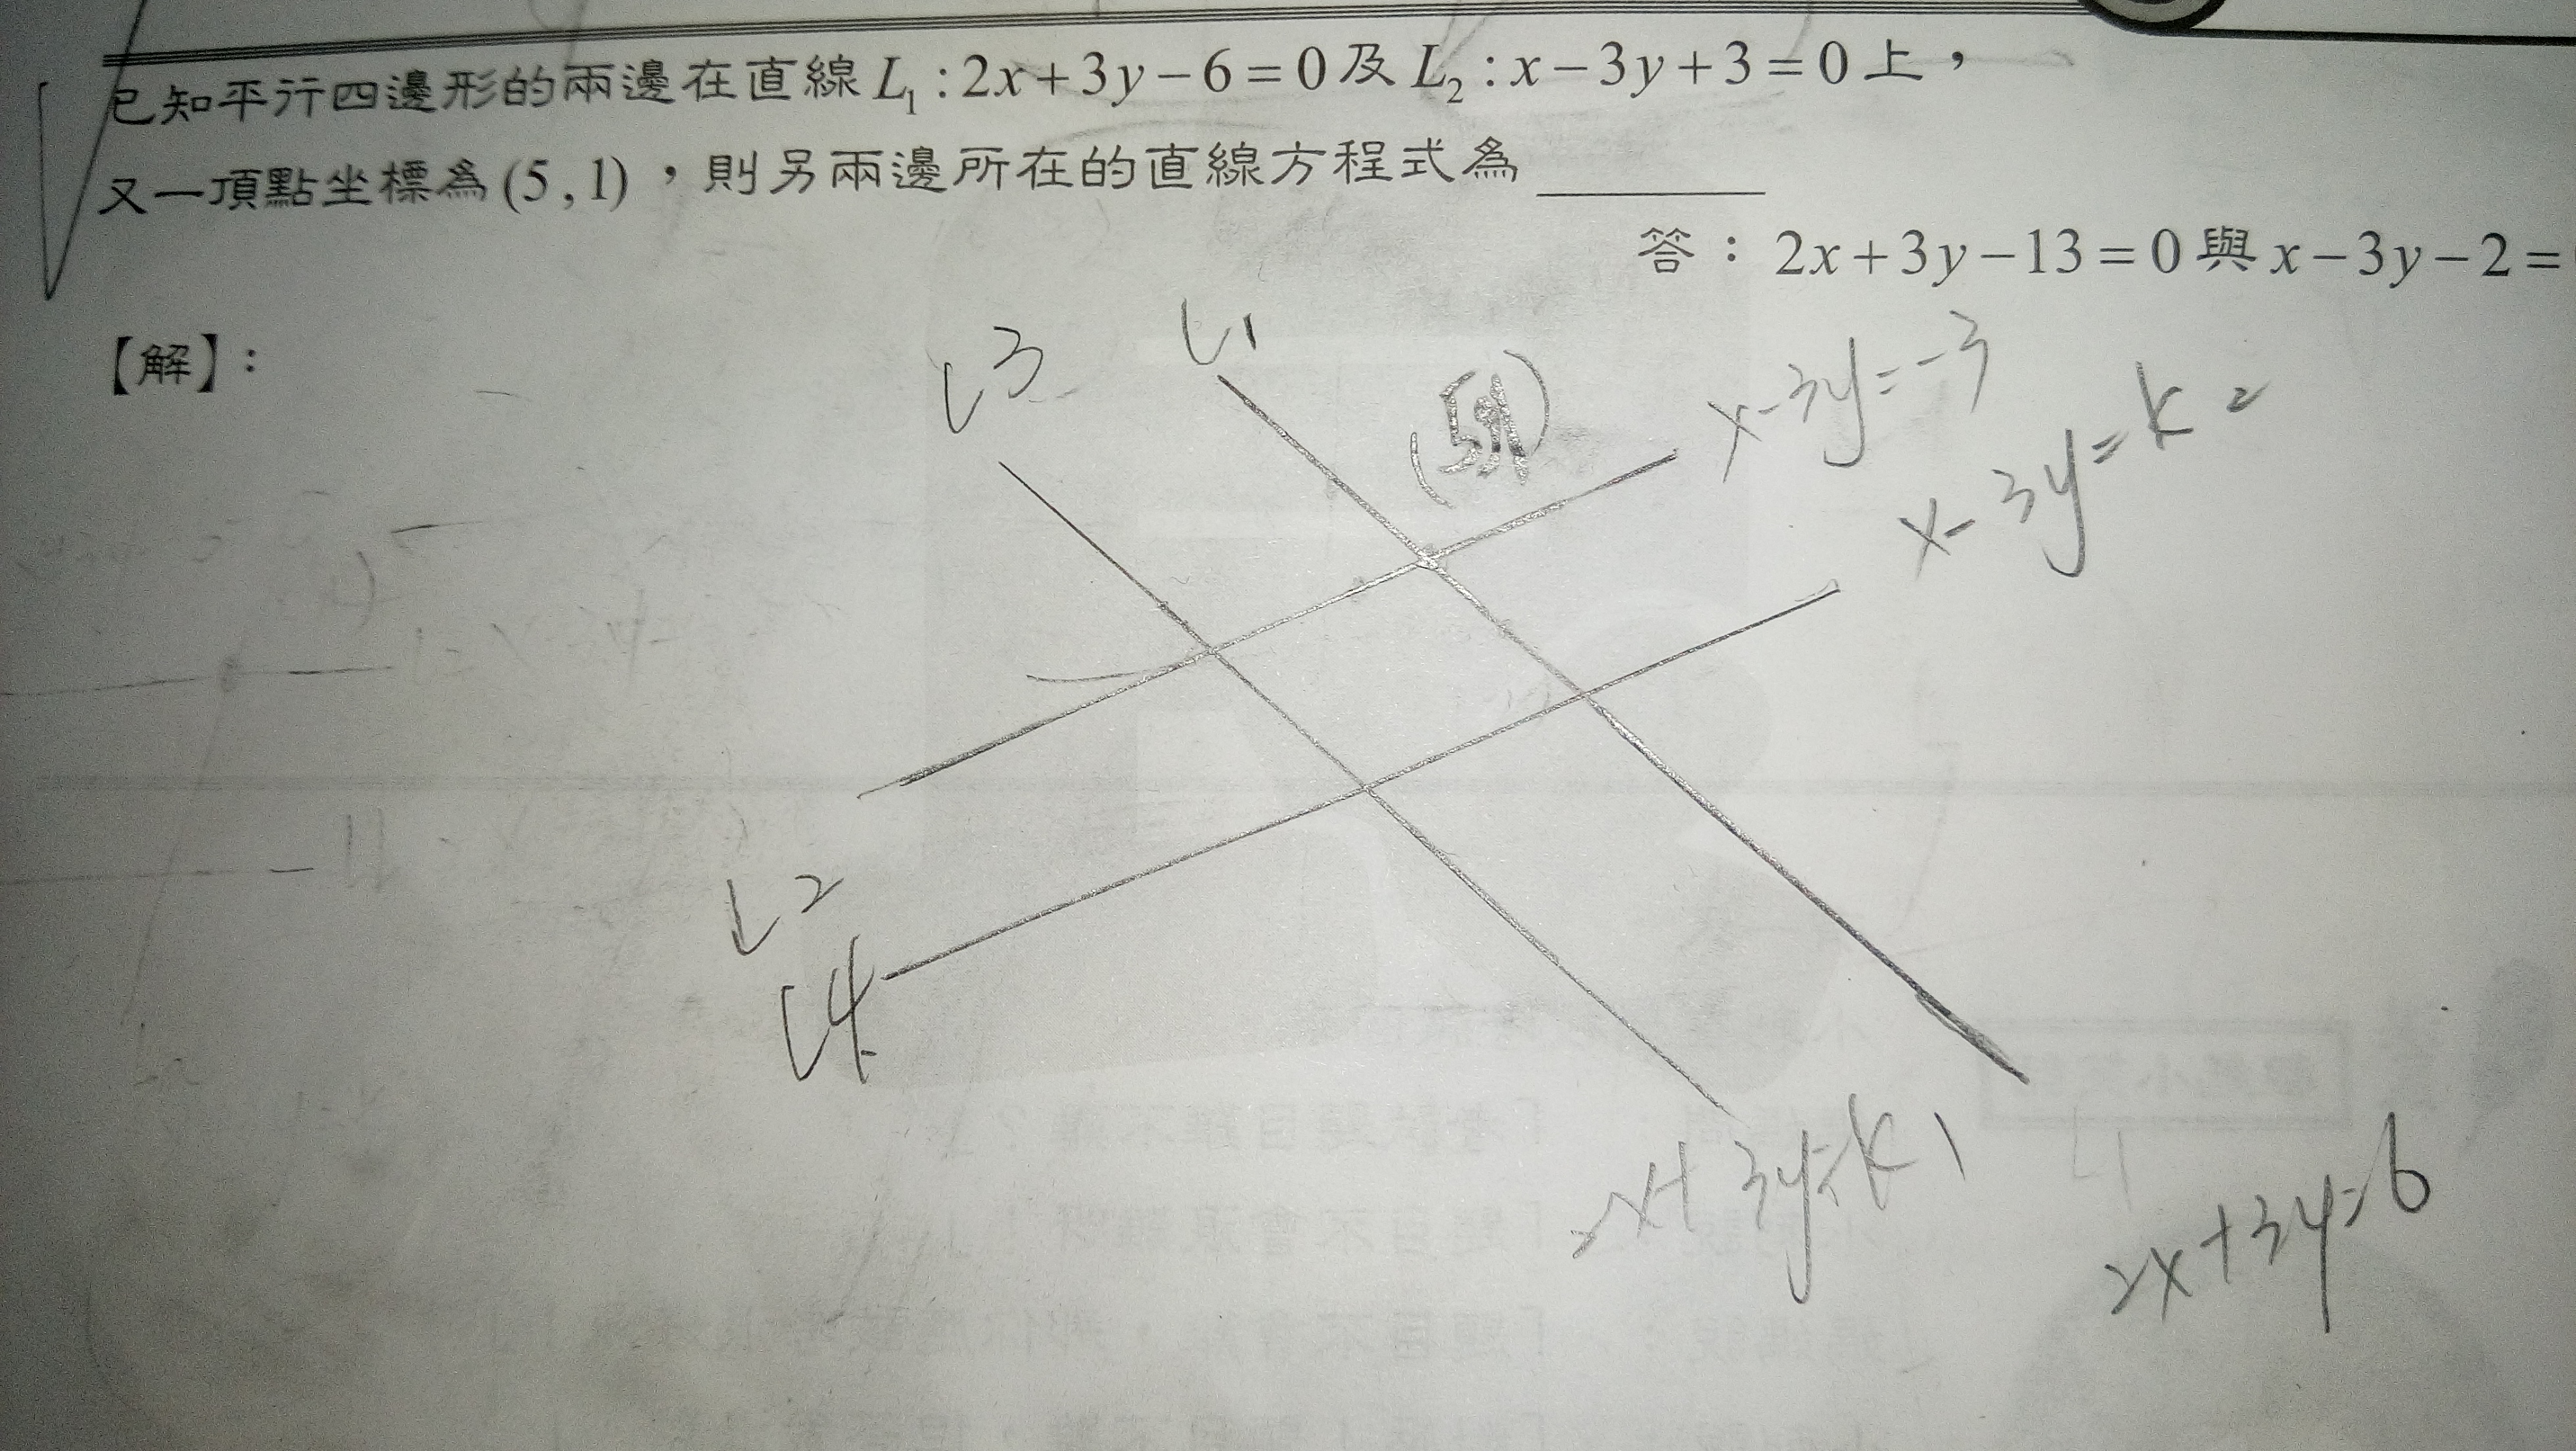 已知平行四邊形的兩邊在直線 L₁ : 2x + 3y − 6 = 0 及 L₂ : x − 3y + 3 = 0 上，
又一頂點坐標為 (5 , 1) ，則另兩邊所在的直線方程式為 ________
答： 2x + 3y − 13 = 0 與 x − 3y − 2 =
【解】：
L3
L1
(5,1)
x-3y=-3
x-3y=k2
L2
L4
2x+3y=k1
L1
2x+3y=6